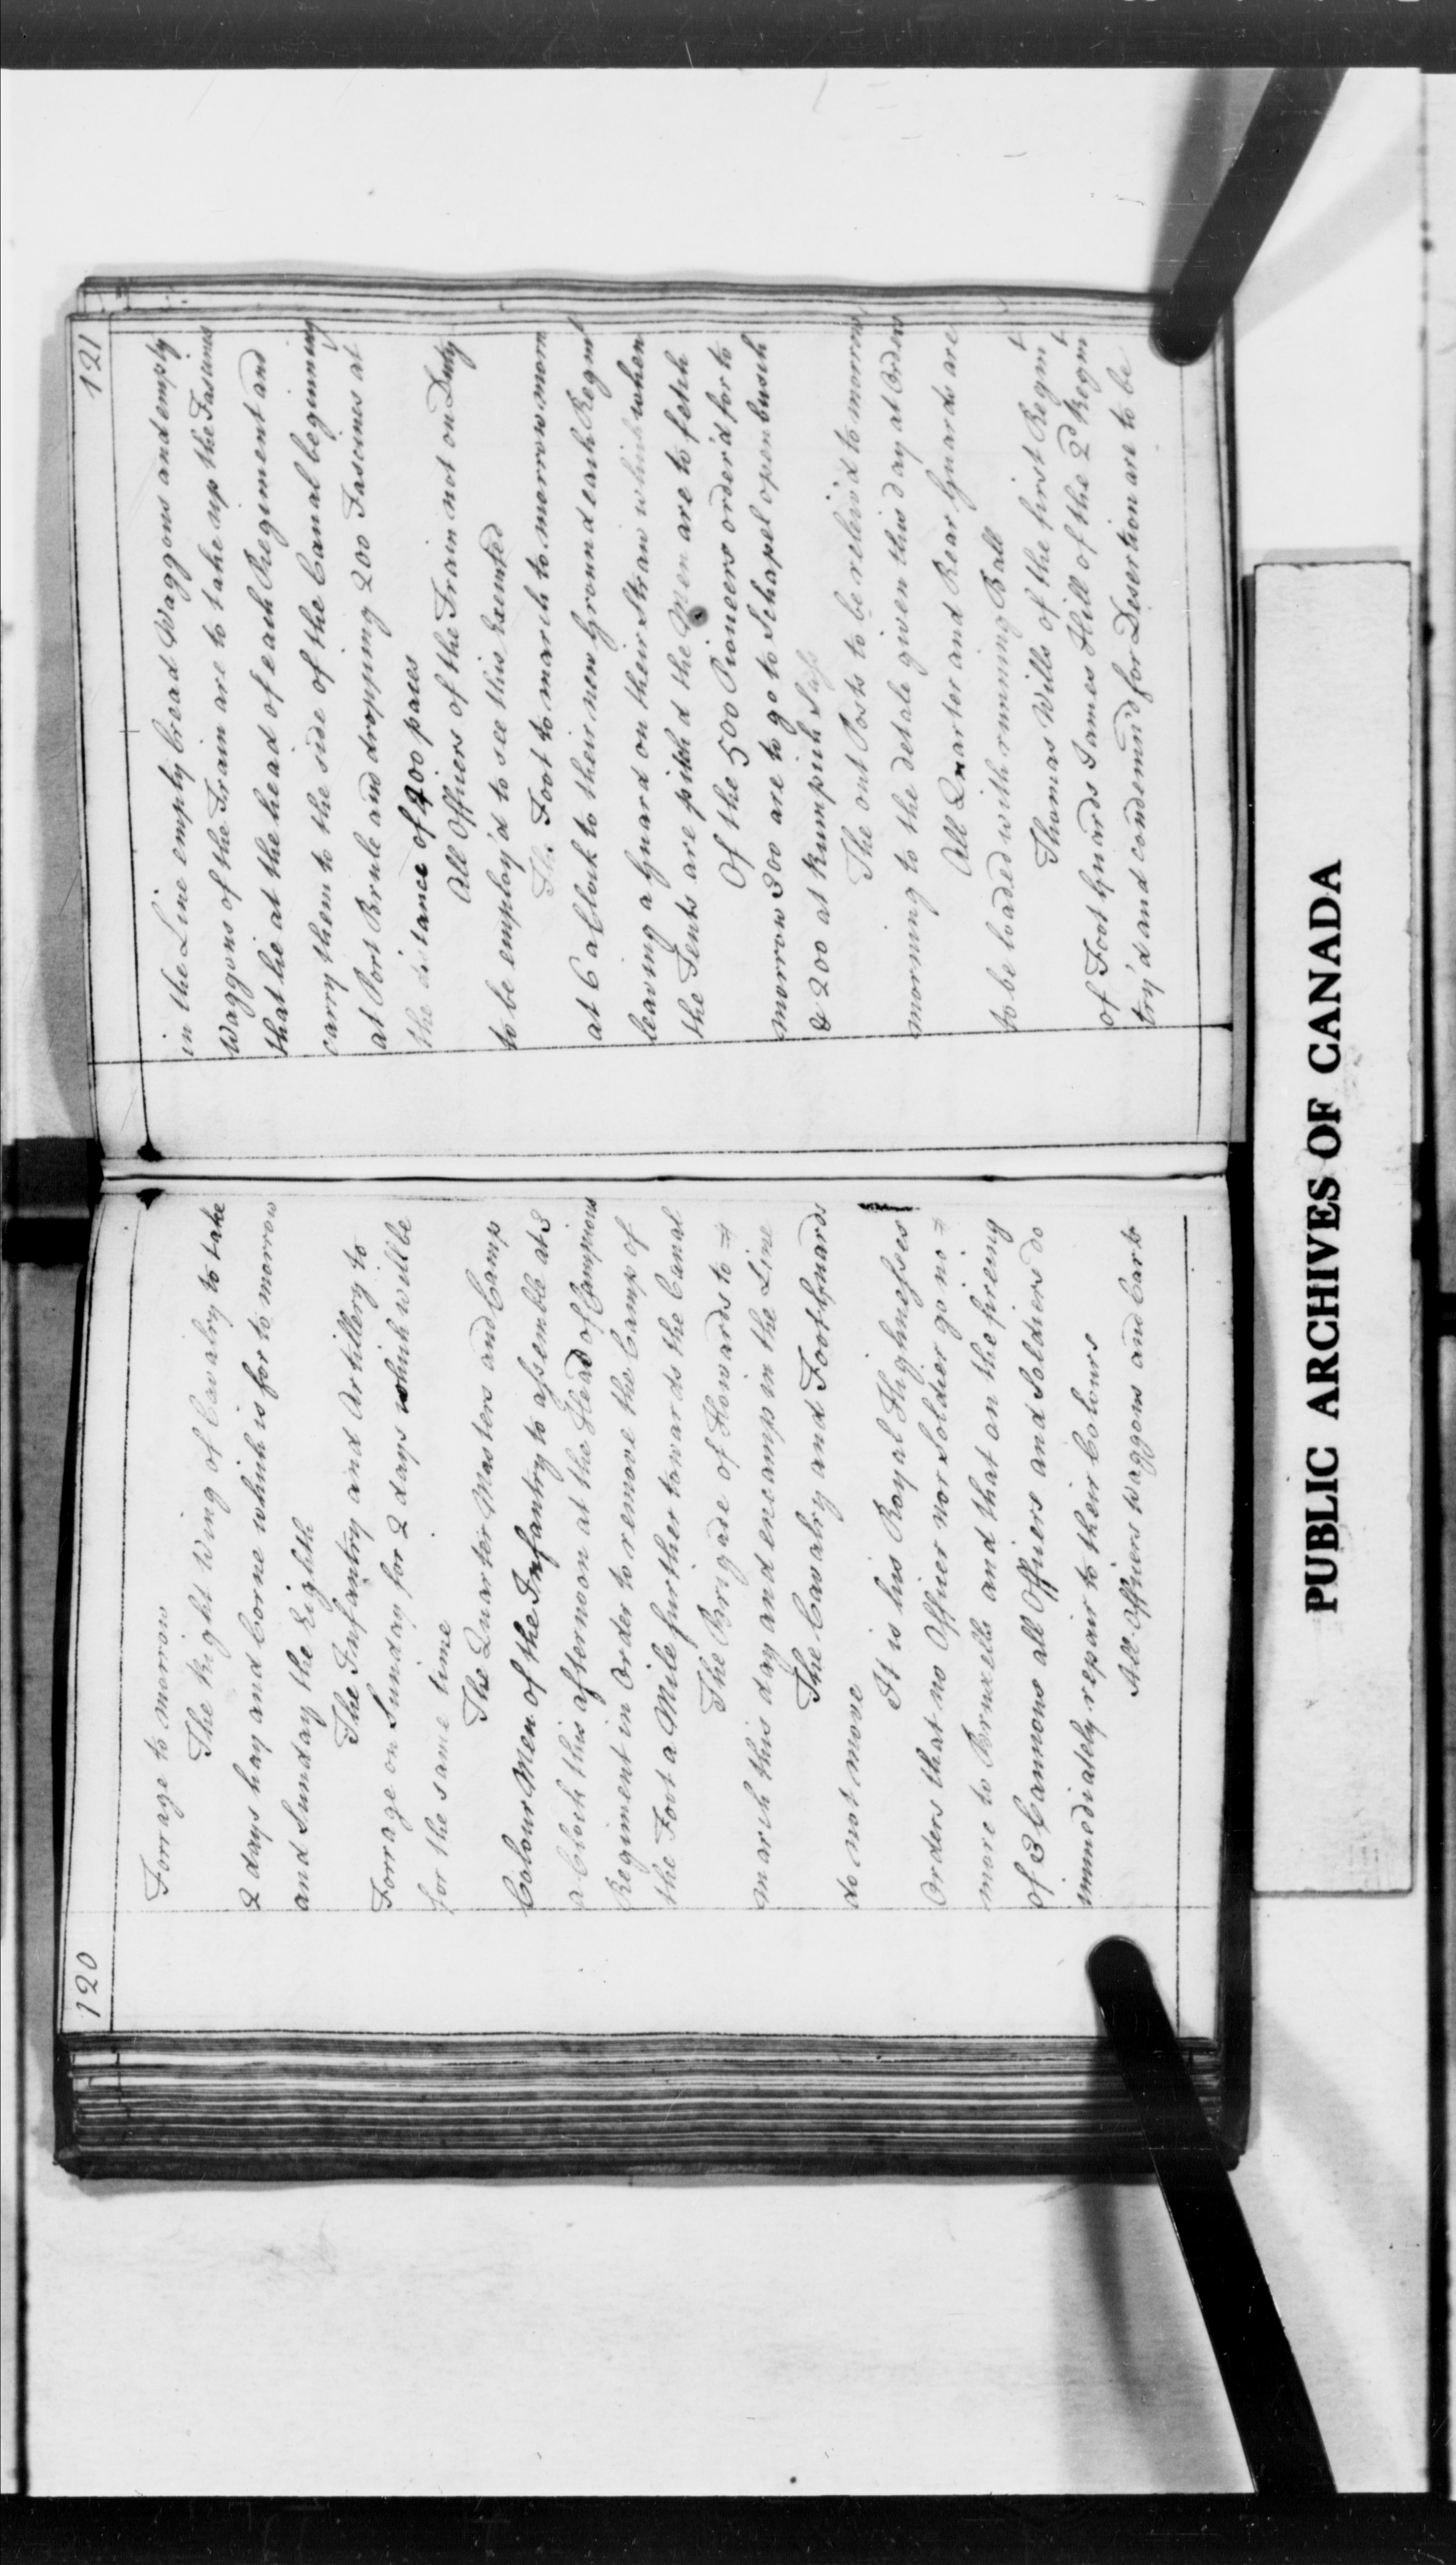 120
Forrage to morrow
The Right Wing of Cavalry to take
2 days hay and Corne which is for to morrow
and Sunday the Eighth
The Infantry and Artillery to
Forrage on Sunday for 2 days which will be
for the same time
The Quarter Masters and Camp
Colour Men of the Infantry to assemble at 3
a Clock this afternoon at the Head of Campions
Regiment in Order to remove the Camp of
the Foot a Mile further towards the Canal
The Brigade of Howards to =
march this day and encamp in the Line
The Cavalry and Foot Guards
do not move
It is his Royal Highnesses
Orders that no Officer nor Soldier go no =
more to Bruxells and that on the fireing
of 3 Cannons all Officers and Soldiers do
immediately repair to their Colours
All Officers Waggons and Carts
121
in the Line empty bread Waggons and empty
Waggons of the Train are to take up the Fasines
that lie at the head of each Regiment and
carry them to the side of the Canal beginning
at Port Brule and dropping 200 Fascines at
the distance of 200 paces
All Officers of the Train not on Duty
to be employ'd to see this Exemted
The Foot to march to morrow morn
at 6 a Clock to their new Ground each Regmt
leaving a Guard on their Straw which when
the Tents are pitch'd the Men are to fetch
Of the 500 Pioneers order'd for to
morrow 300 are to go to Schapel openbusch
& 200 at Rumpich
The out Posts to be reliev'd to morrow
morning to the detale given this day at Orders
All Quarter and Rear Guards are
to be loaded with running Ball
Thomas Wills of the first Regmt
of Foot Guards James Hill of the 2d Regmt
try'd and condemn'd for Desertion are to be
PUBLIC ARCHIVES OF CANADA